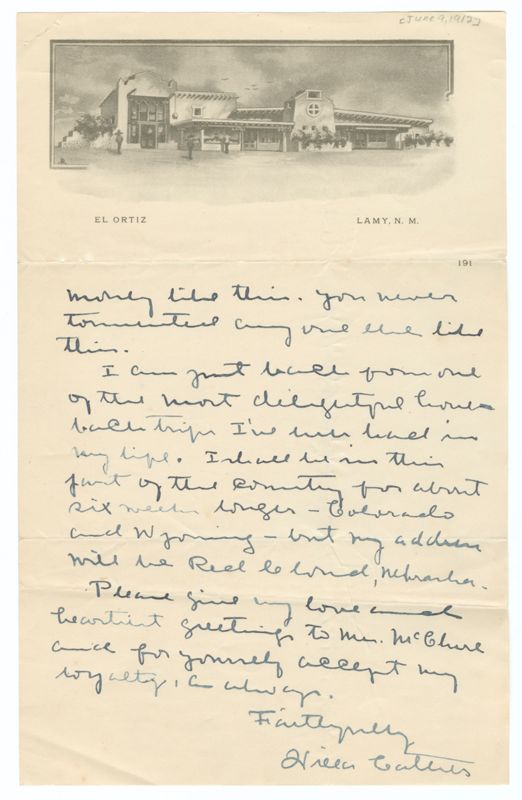 [June 9, 1912]
EL ORTIZ
LAMY, N. M.
191
money like this. You never
tormented any one else like
this.
I am just back from one
of the most delightful horse-
back trips I've ever had in
my life. I shall be in this
part of the country for about
six weeks longer - Colorado
and Wyoming - but my address
will be Red Cloud, Nebraska.
Please give my love and
heartiest greetings to Mrs. McClure
and for yourself accept my
loyalty, as always.
Faithfully
Willa Cather